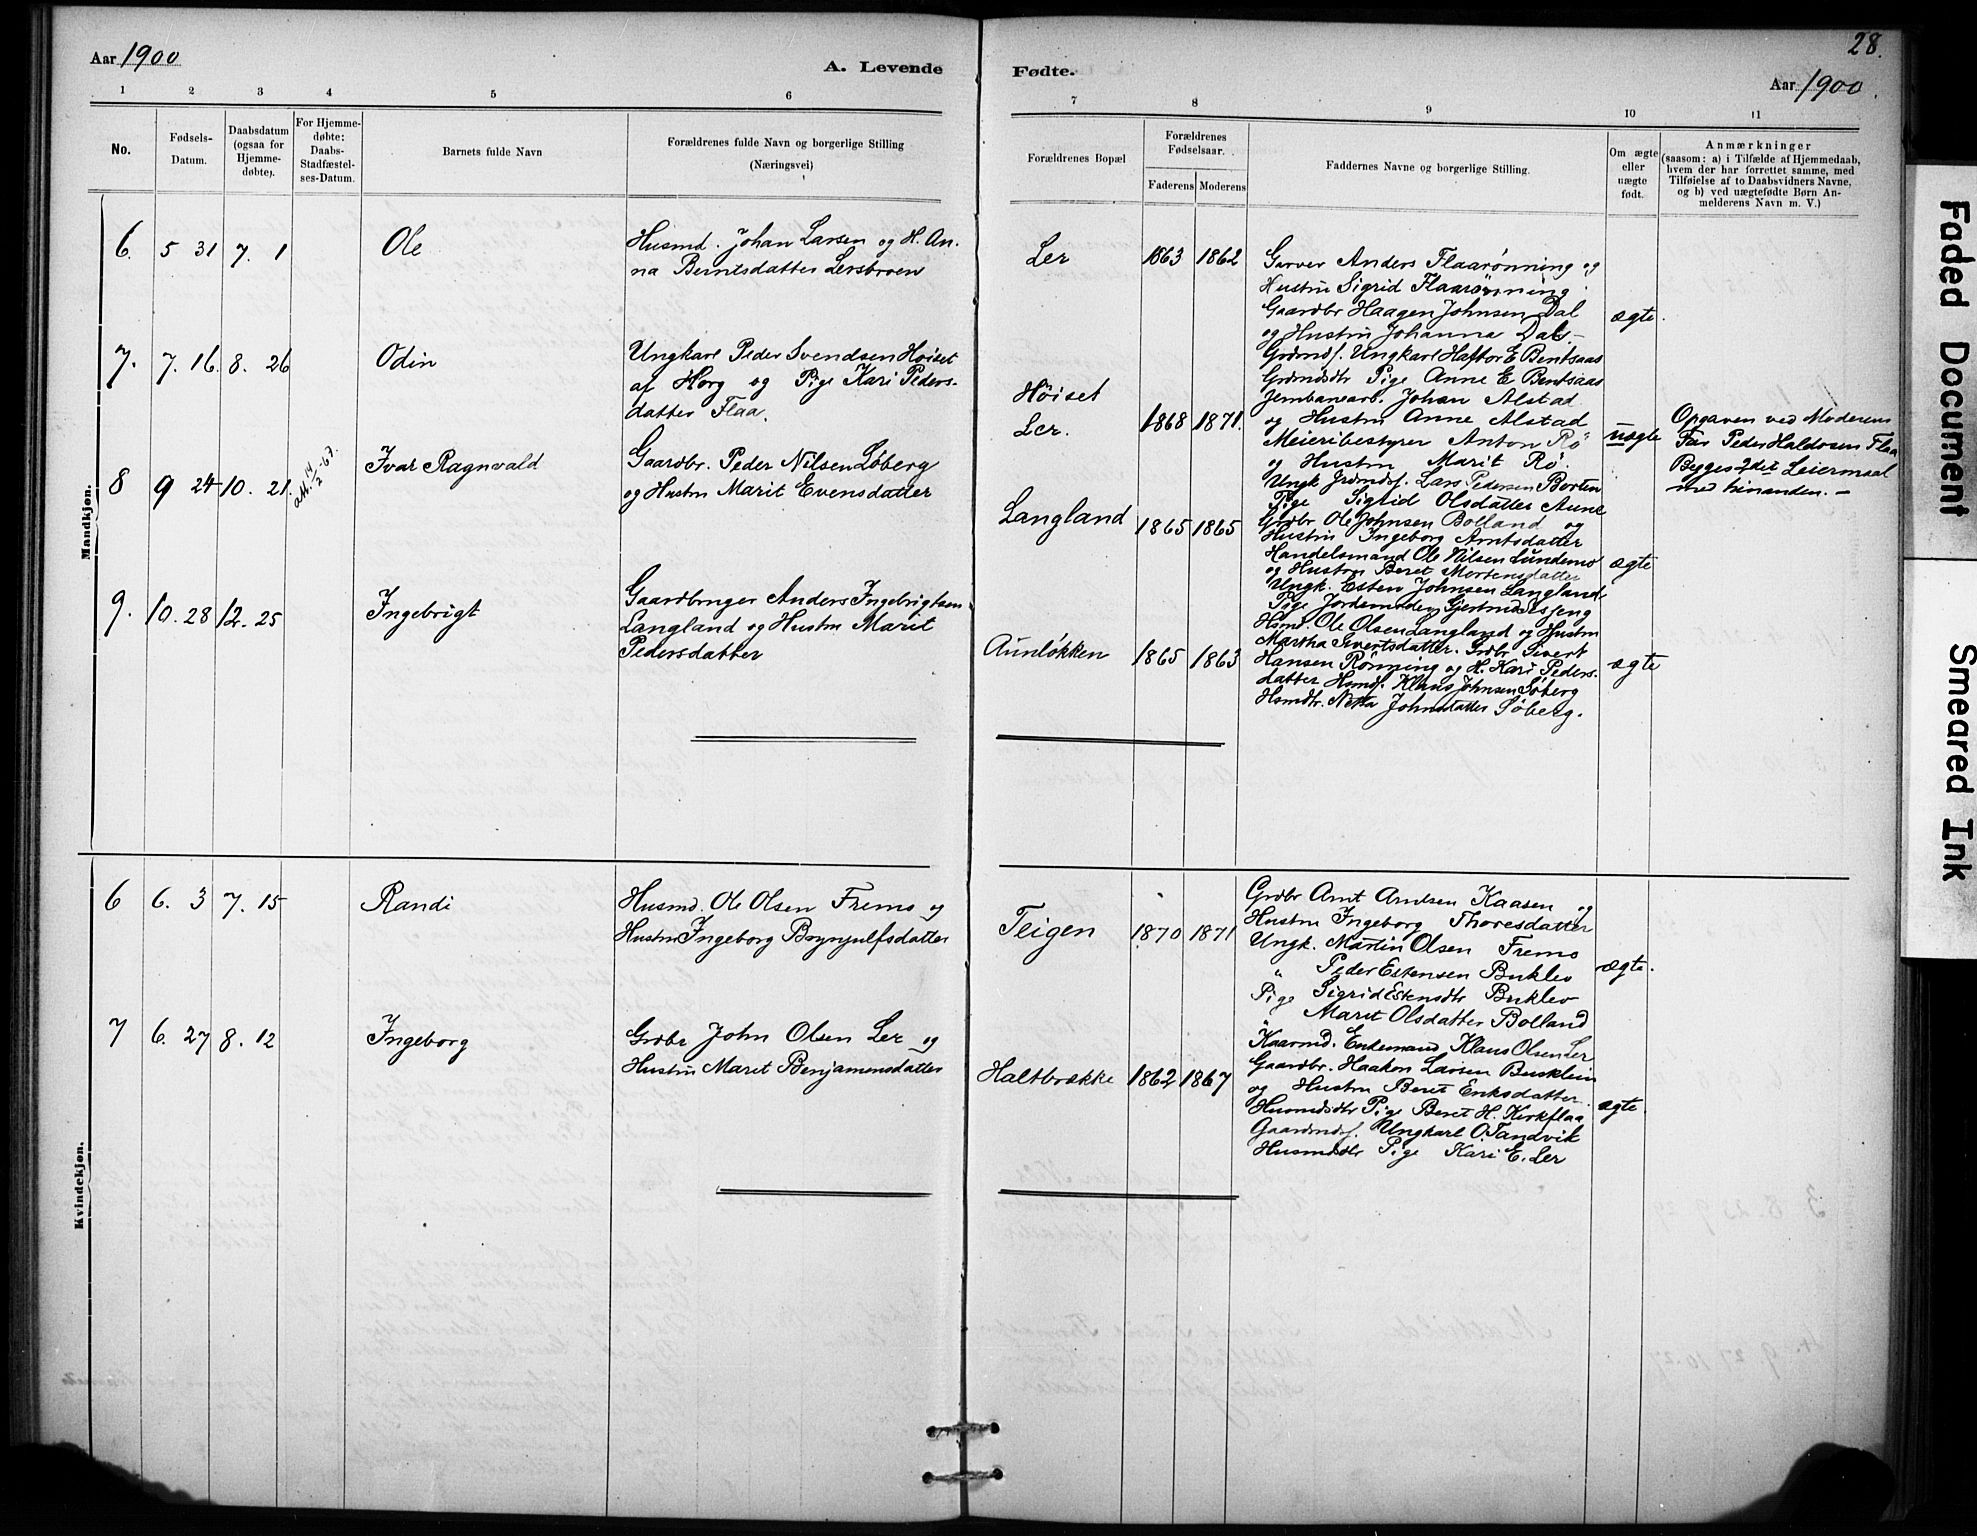 28.
Aar 1900
A. Levende
Fødte.
Aar 1900.
1 2 3 4 5 6 7 8 9 10 11
No.
Fødsels-
Datum.
Daabsdatum
(ogsaa for
Hjemme-
døbte).
For Hjemme-
døbte:
Daabs-
Stadfæstel-
ses-Datum.
Barnets fulde Navn
Forældrenes fulde Navn og borgerlige Stilling
(Næringsvei)
Forældrenes Bopæl
Forældrenes
Fødselsaar.
Faderens Moderens
Faddernes Navne og borgerlige Stilling.
Om ægte
eller
uægte
født.
Anmærkninger
(saasom: a) i Tilfælde af Hjemmedaab,
hvem der har forrettet samme, med
Tilføielse af to Daabsvidners Navne,
og b) ved uægtefødte Børn An-
melderens Navn m. V.)
Mandkjøn.
6. 5 31 7. 1
Ole
Husmd. Johan Larsen og H. An-
na Berntsdatter Lersbroen
Ler
1863 1862
Garver Anders Flaarønning og
Hustru Sigrid Flaarønning
Gaardbr Haagen Johnsen Dal
og Hustru Johanna Dal
ægte.
7. 7. 16. 8. 26
Odin
Ungkarl Peder Svendsen Høiset
af Horg og Pige Kari Peders-
datter Flaa.
Høiset
Ler.
1868 1871.
Grdmds. Ungkarl Haftor E Bentsaas
Grdmdsdtr Pige Anne E Bentsaas
Jernbanearb. Johan Alstad
og Hustru Anne Alstad
Meieribestyrer Anton Rø
og Hustru Marit Rø.
uægte
Opgaven ved Moderens
Far Peder Haldosen Flaa
Begges 2det Leiermaal
med hinanden. —
8 9 24 10. 21.
att. 14/2-67.
Ivar Ragnvald
Gaardbr. Peder Nilsen Løberg
og Hustru Marit Evensdatter
Langland
1865 1865
Ungk Grdmds. Lars Pedersen Borten
Pige Sigrid Olsdatter Aune
Grdbr Ole Johnsen Bolland og
Hustru Ingeborg Arntsdatter
Handelsmand Ole Nilsen Lundemo
og Hustru Beret Mortensdatter
ægte
9. 10. 28 12. 25
Ingebrigt
Gaardbruger Anders Ingebrigtsen
Langland og Hustru Marit
Pedersdatter
Aunløkken
1865 1863
Ungk. Esten Johnsen Langland
Pige Jordemoder Gjertrud Esseng
Hsmd. Ole Olsen Langland og Hustru
Martha Sivertsdatter. Grdbr Sivert
Hansen Rønning og H. Kari Peders-
datter Hsmds. Klaus Johnsen Søberg
Hsmdtr. Netta Johnsdatter Søberg.
ægte
Kvindekjøn.
6 6. 3 7. 15
Randi
Husmd. Ole Olsen Fremo og
Hustru Ingeborg Brynjulfsdatter
Teigen
1870 1871
Grdbr Arnt Arntsen Kaasen og
Hustru Ingeborg Thoresdatter
Ungk. Martin Olsen Fremo
" Peder Estensen Buklev
Pige Sigrid Estensdtr Buklev
" Marit Olsdatter Bolland
ægte.
7 6. 27 8. 12
Ingeborg
Grdbr John Olsen Ler og
Hustru Marit Benjaminsdatter
Haltbrække
1862 1867
Kaarmd. Enkemand Klaus Olsen Ler
Gaardbr. Haakon Larsen Busklein
og Hustru Beret Eriksdatter.
Husmdsdtr Pige Beret H. Kirkflaa
Gaardmds. Ungkarl O. Tandvik
Husmdsdtr Pige Kari E. Ler
ægte.
Faded Document
Smeared Ink